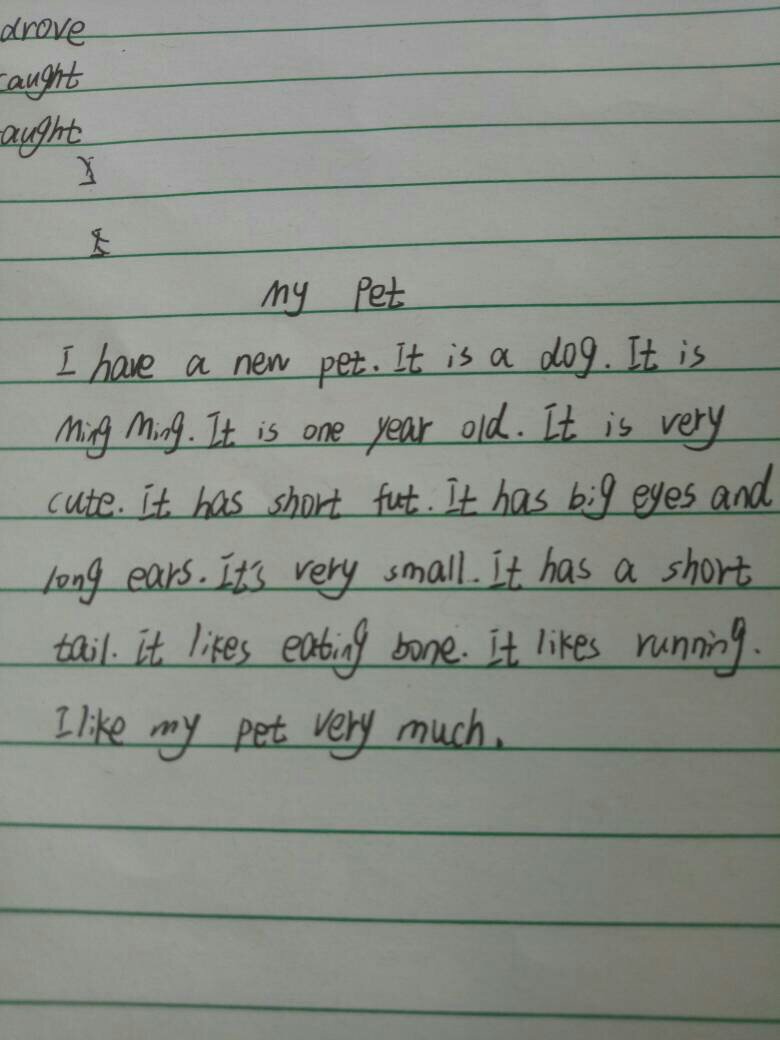 drove
caught
aught
My Pet
I have a new pet. It is a dog. It is
Ming Ming. It is one year old. It is very
cute. it has short fut. It has big eyes and
long ears. It's very small. it has a short
tail. it likes eating bone. it likes running.
I like my pet very much.